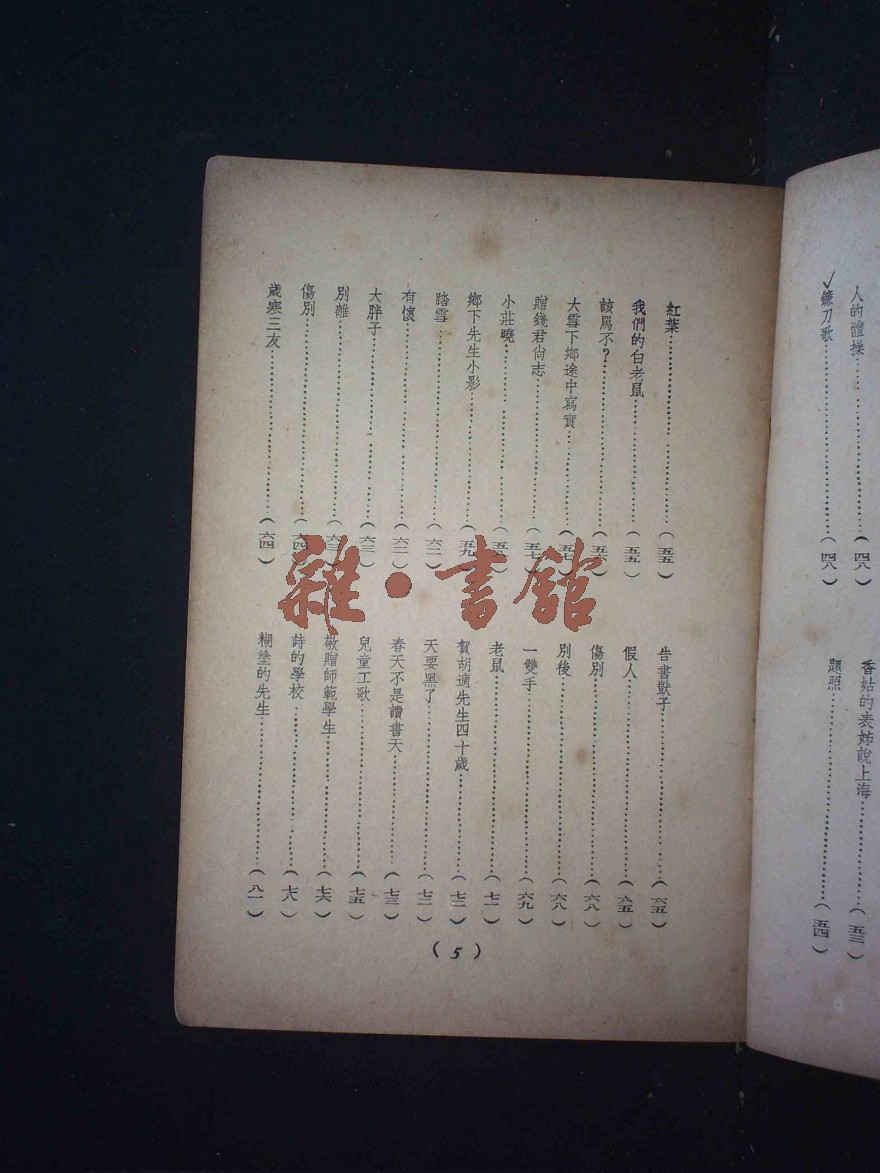 人的體操……(四八)
鐮刀歌……(四八)
香姑的表姊說上海……(五三)
題照……(五四)
紅葉……(五五)
我們的白老鼠……(五五)
該罵不?……(五六)
大雪下鄉途中寫實……(五七)
贈錢君尙志……(五七)
小莊曉……
鄉下先生小影……(五九)
踏雪……(六一)
有懷……(六一)
大胖子……(六三)
別離……(六三)
傷別……(六四)
歲寒三友……(六四)
告書獃子……(六五)
假人……(六五)
傷別……(六八)
別後……(六八)
一雙手……(六九)
老鼠……(七一)
賀胡適先生四十歲……(七二)
天要黑了……(七二)
春天不是讀書天……(七三)
兒童工歌……(七五)
敬贈師範學生……(七六)
詩的學校……(七八)
糊塗的先生……(八一)
(5)
雜·書館